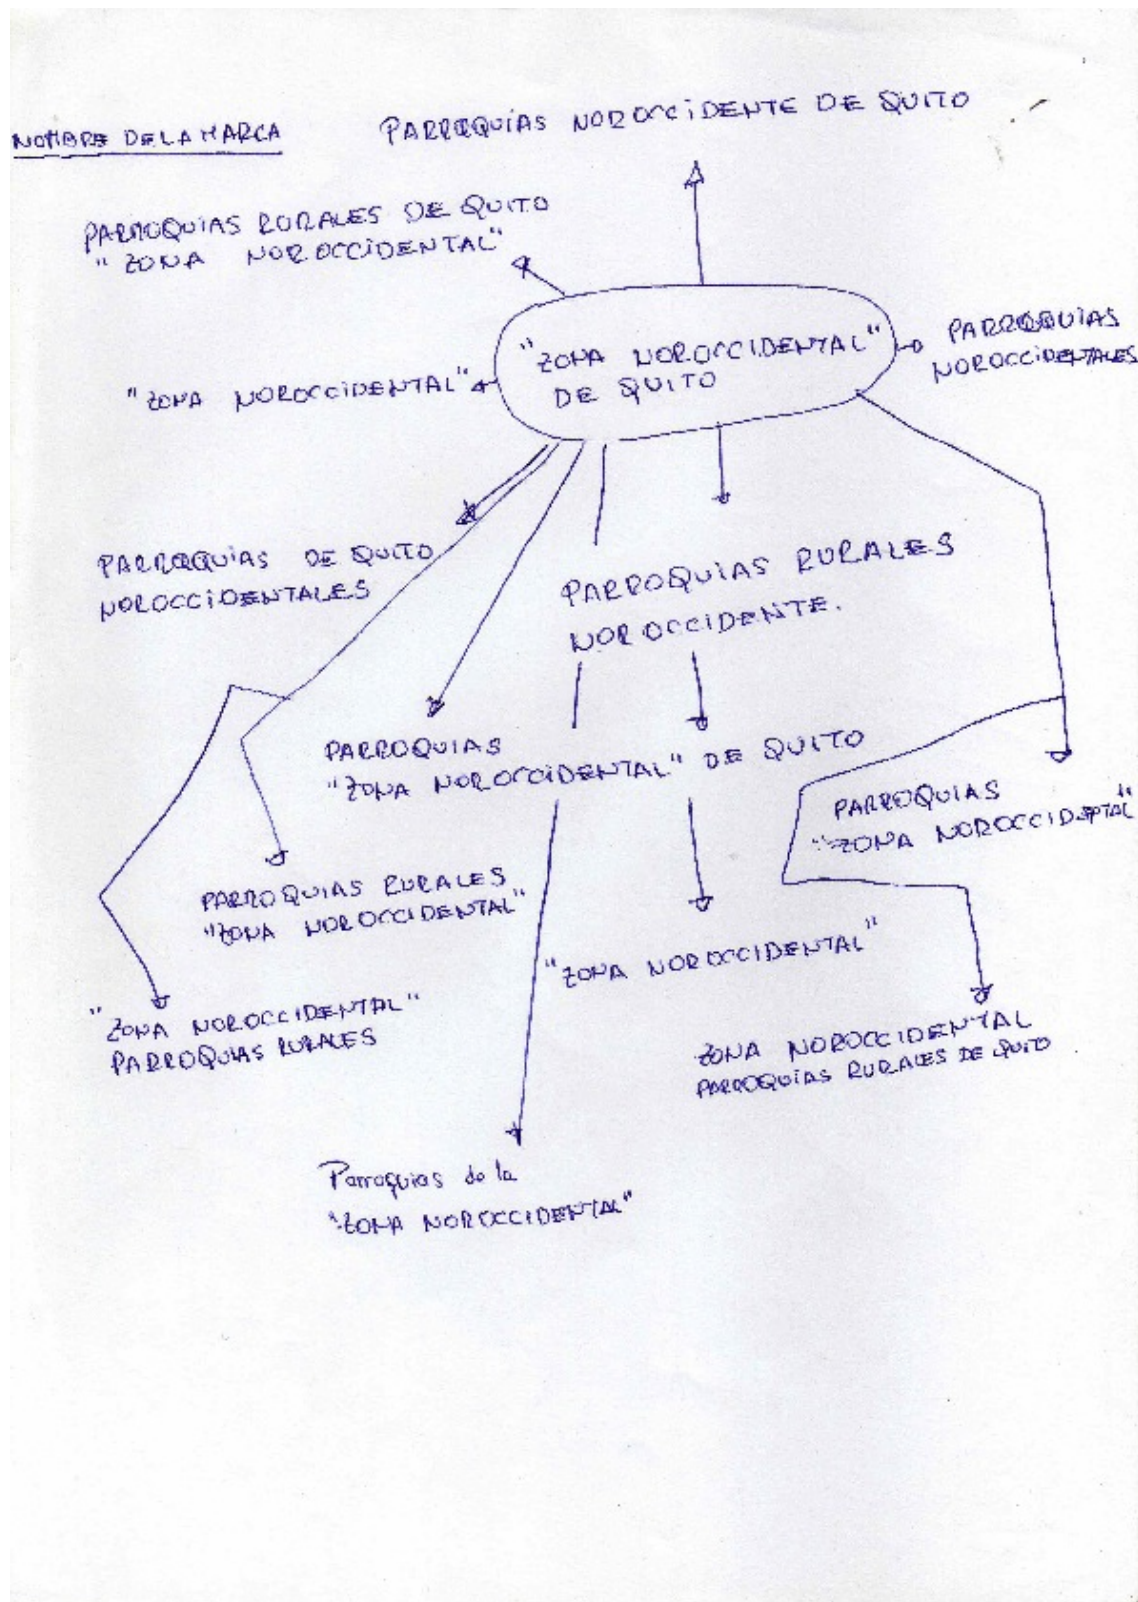 PARROQUIAS NOROCCIDENTE DE QUITO
NOMBRE DE LA MARCA
PARROQUIAS RURALES DE QUITO
"ZONA NOROCCIDENTAL"
"ZONA NOROCCIDENTAL"
DE QUITO
PARROQUIAS
NOROCCIDENTALES
"ZONA NOROCCIDENTAL"
PARROQUIAS DE QUITO
NOROCCIDENTALES
PARROQUIAS RURALES
NOROCCIDENTE.
PARROQUIAS
"ZONA NOROCCIDENTAL" DE QUITO
PARROQUIAS
"ZONA NOROCCIDENTAL"
PARROQUIAS RURALES
"ZONA NOROCCIDENTAL"
"ZONA NOROCCIDENTAL"
"ZONA NOROCCIDENTAL"
PARROQUIAS RURALES
ZONA NOROCCIDENTAL
PARROQUIAS RURALES DE QUITO
Parroquias de la
"ZONA NOROCCIDENTAL"